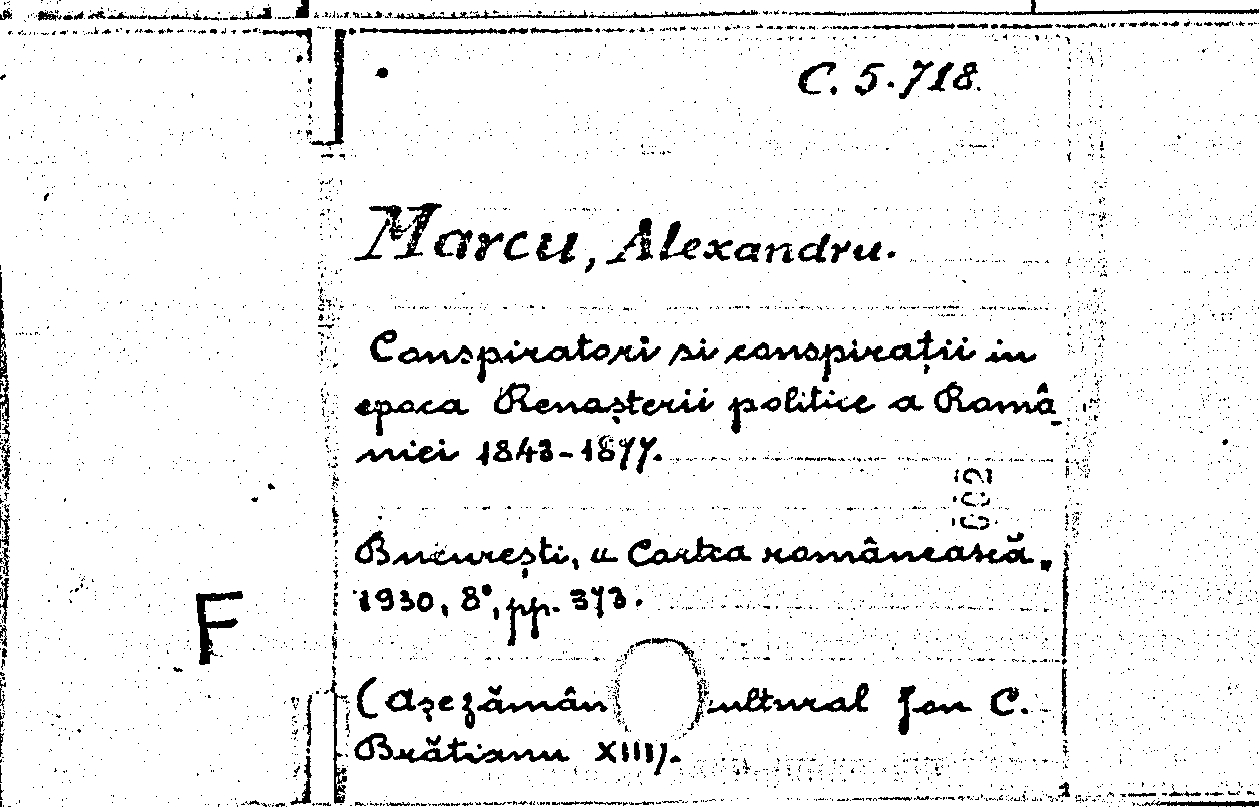 C. 5.718.
Marcu, Alexandru.
Conspiratori si conspirații in
epoca Renașterii politice a Româ-
niei 1848-1877.
002
București, „Cartea românească„
1930, 8°, pp. 373.
F
(Așezămân ultural Jon C.
Brătianu XIII).